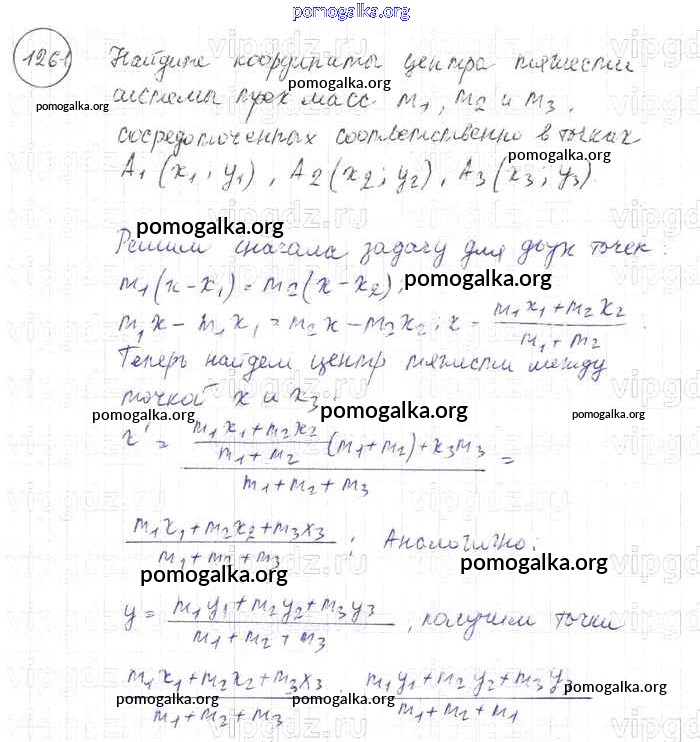 pomogalka.org
1261 Найдите координаты центра тяжести
pomogalka.org
системы трех масс m₁, m₂ и m₃,
pomogalka.org
сосредоточенных соответственно в точках
pomogalka.org
A₁(x₁; y₁), A₂(x₂; y₂), A₃(x₃; y₃)
pomogalka.org
Решим сначала задачу для двух точек:
m₁(x-x₁) = m₂(x-x₂),
pomogalka.org
m₁x - m₁x₁ = m₂x - m₂x₂; x = (m₁x₁+m₂x₂)/(m₁+m₂)
pomogalka.org
Теперь найдем центр тяжести между
точкой x и x₃:
pomogalka.org
pomogalka.org
pomogalka.org
x' = ((m₁x₁+m₂x₂)/(m₁+m₂) (m₁+m₂)+x₃m₃)/(m₁+m₂+m₃) =
(m₁x₁+m₂x₂+m₃x₃)/(m₁+m₂+m₃); Аналогично:
pomogalka.org
pomogalka.org
y = (m₁y₁+m₂y₂+m₃y₃)/(m₁+m₂+m₃), получим точки
(m₁x₁+m₂x₂+m₃x₃)/(m₁+m₂+m₃); (m₁y₁+m₂y₂+m₃y₃)/(m₁+m₂+m₁)
pomogalka.org
pomogalka.org